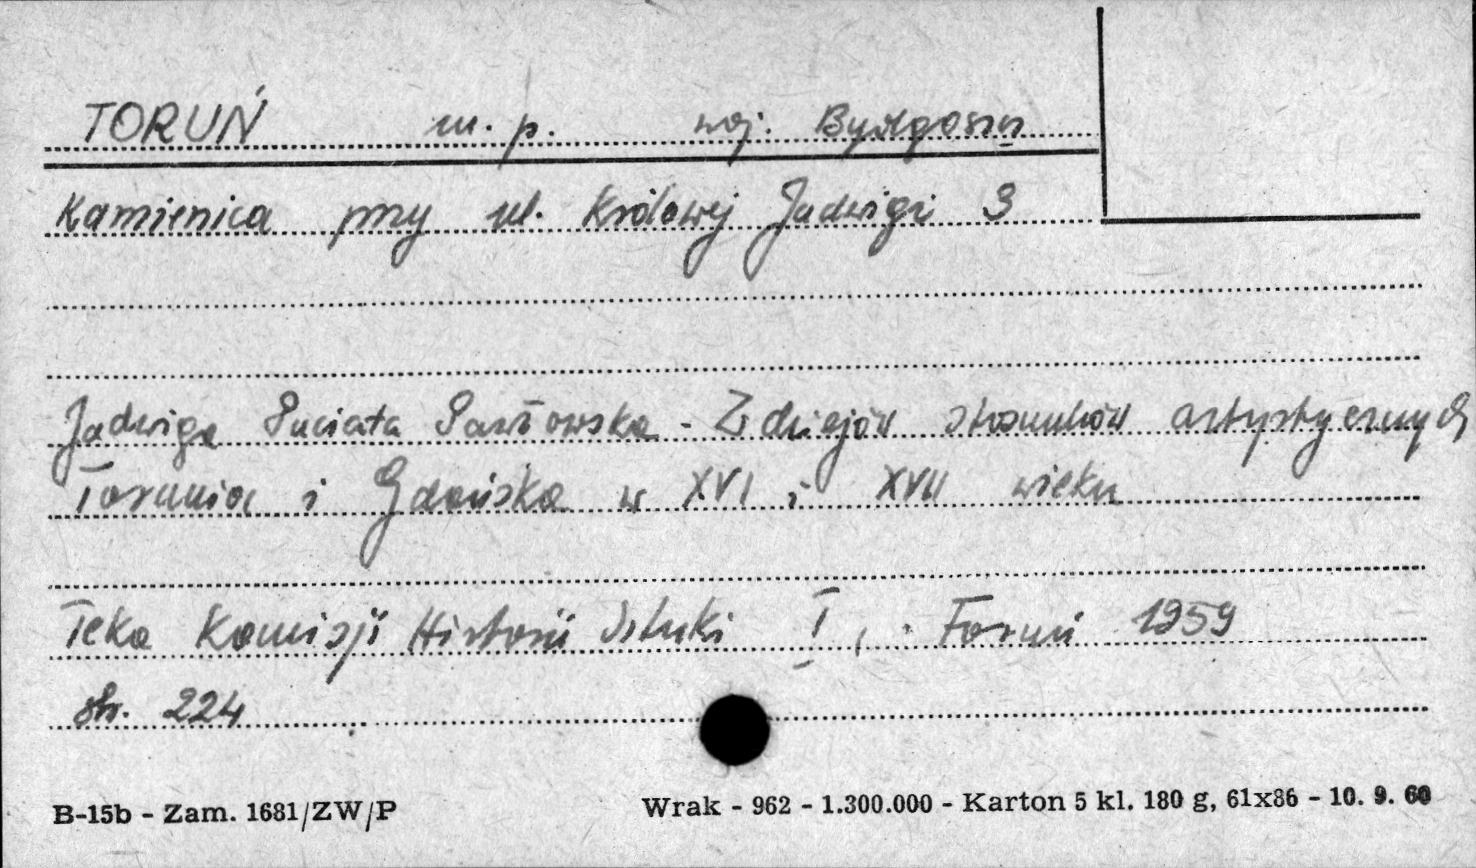 TORUŃ m. p. woj. Bydgoszcz
Kamienica przy ul. Królowej Jadwigi 3
Jadwiga Puciata Pawłowska - Z dziejów stosunków artystycznych
Torunia i Gdańska w XVI i XVII wieku
Teka Komisji Historii Sztuki I, Toruń 1959
str. 224
B-15b - Zam. 1681/ZW/P
Wrak - 962 - 1.300.000 - Karton 5 kl. 180 g, 61x86 - 10. 9. 60